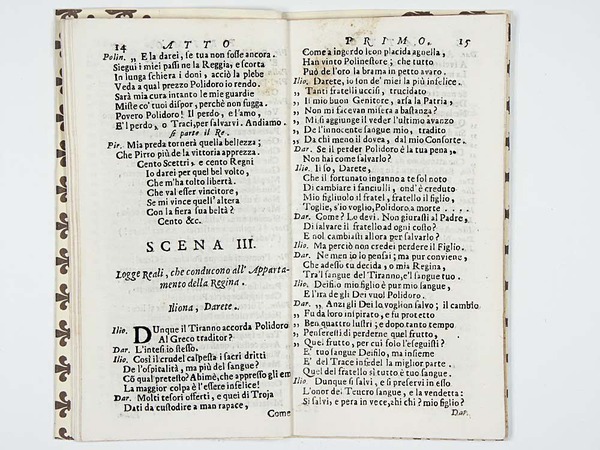 14 ATTO
Polin. „ E la darei, se tua non fosse ancora.
Siegui i miei passi ne la Reggia, e scorta
In lunga schiera i doni, acciò la plebe
Veda a qual prezzo Polidoro io rendo.
Sarà mia cura intanto le mie guardie
Miste co' tuoi dispor, perchè non fugga.
Povero Polidoro! Il perdo, e l'amo,
E 'l perdo, o Traci, per salvarvi. Andiamo.
si parte il Re.
Pir. Mia preda tornerà quella bellezza;
Che Pirro più de la vittoria apprezza.
Cento Scettri, e cento Regni
Io darei per quel bel volto,
Che m'ha tolto libertà.
Che val esser vincitore,
Se mi vince quell' altera
Con la fiera sua beltà?
Cento &c.
SCENA III.
Logge Reali, che conducono all' Apparta-
mento della Regina.
Iliona, Darete.
Ilio. DUnque il Tiranno accorda Polidoro
Al Greco traditor?
Dar. L'intesi io stesso.
Ilio. Così il crudel calpesta i sacri dritti
De l'ospitalità, ma più del sangue?
Cō qual pretesto? Abimè, che appresso gli em
La maggior colpa è l'essere infelice!
Dar. Molti tesori offerti, e quei di Troja
Dati da custodire a man rapace,
Come
PRIMO. 15
Come a ingordo leon placida agnella,
Han vinto Polinestore; che tutto
Può de l'oro la brama in petto avaro.
Ilio. Darete, io son de' miei la più infelice.
„ Tanti fratelli uccisi, trucidato
„ Il mio buon Genitore, arsa la Patria,
„ Non mi facevan misera a bastanza?
„ Mi si aggiunge il veder l'ultimo avanzo
„ De l'innocente sangue mio, tradito
„ Da chi meno il dovea, dal mio Consorte.
Dar. Se il perder Polidoro è la tua pena,
Non hai come salvarlo?
Ilio. Il so, Darete,
Che il fortunato inganno a te sol noto
Di cambiare i fanciulli, ond' è creduto
Mio figliuolo il fratel, fratello il figlio,
Toglie, s'io voglio, Polidoro a morte ....
Dar. Come? Lo devi. Non giurasti al Padre,
Di salvare il fratello ad ogni costo?
E nol cambiasti allora per salvarlo?
Ilio. Ma perciò non credei perdere il Figlio.
Dar. Ne men io lo pensai; ma pur conviene,
Che adesso tu decida, o mia Regina,
Tra 'l sangue del Tiranno, e 'l sangue tuo.
Ilio. Deifilo mio figlio è pur mio sangue,
E l'ira de gli Dei vuol Polidoro.
Dar. „ Anzi gli Dei lo voglion salvo; il cambio
„ Fu da loro inspirato, e fu protetto
„ Ben quattro lustri; e dopo tanto tempo
„ Penseresti di perderne quel frutto,
„ Quel frutto, per cui solo l'eseguisti?
E' tuo sangue Deifilo, ma insieme
E' del Trace infedel la miglior parte.
Quel del fratello sì tutto è tuo sangue.
Ilio Dunque si salvi, e si preservi in esso
L'onor del Teucro sangue, e la vendetta:
Si salvi, e pera in vece, chi chi? mio figlio?
Dar.